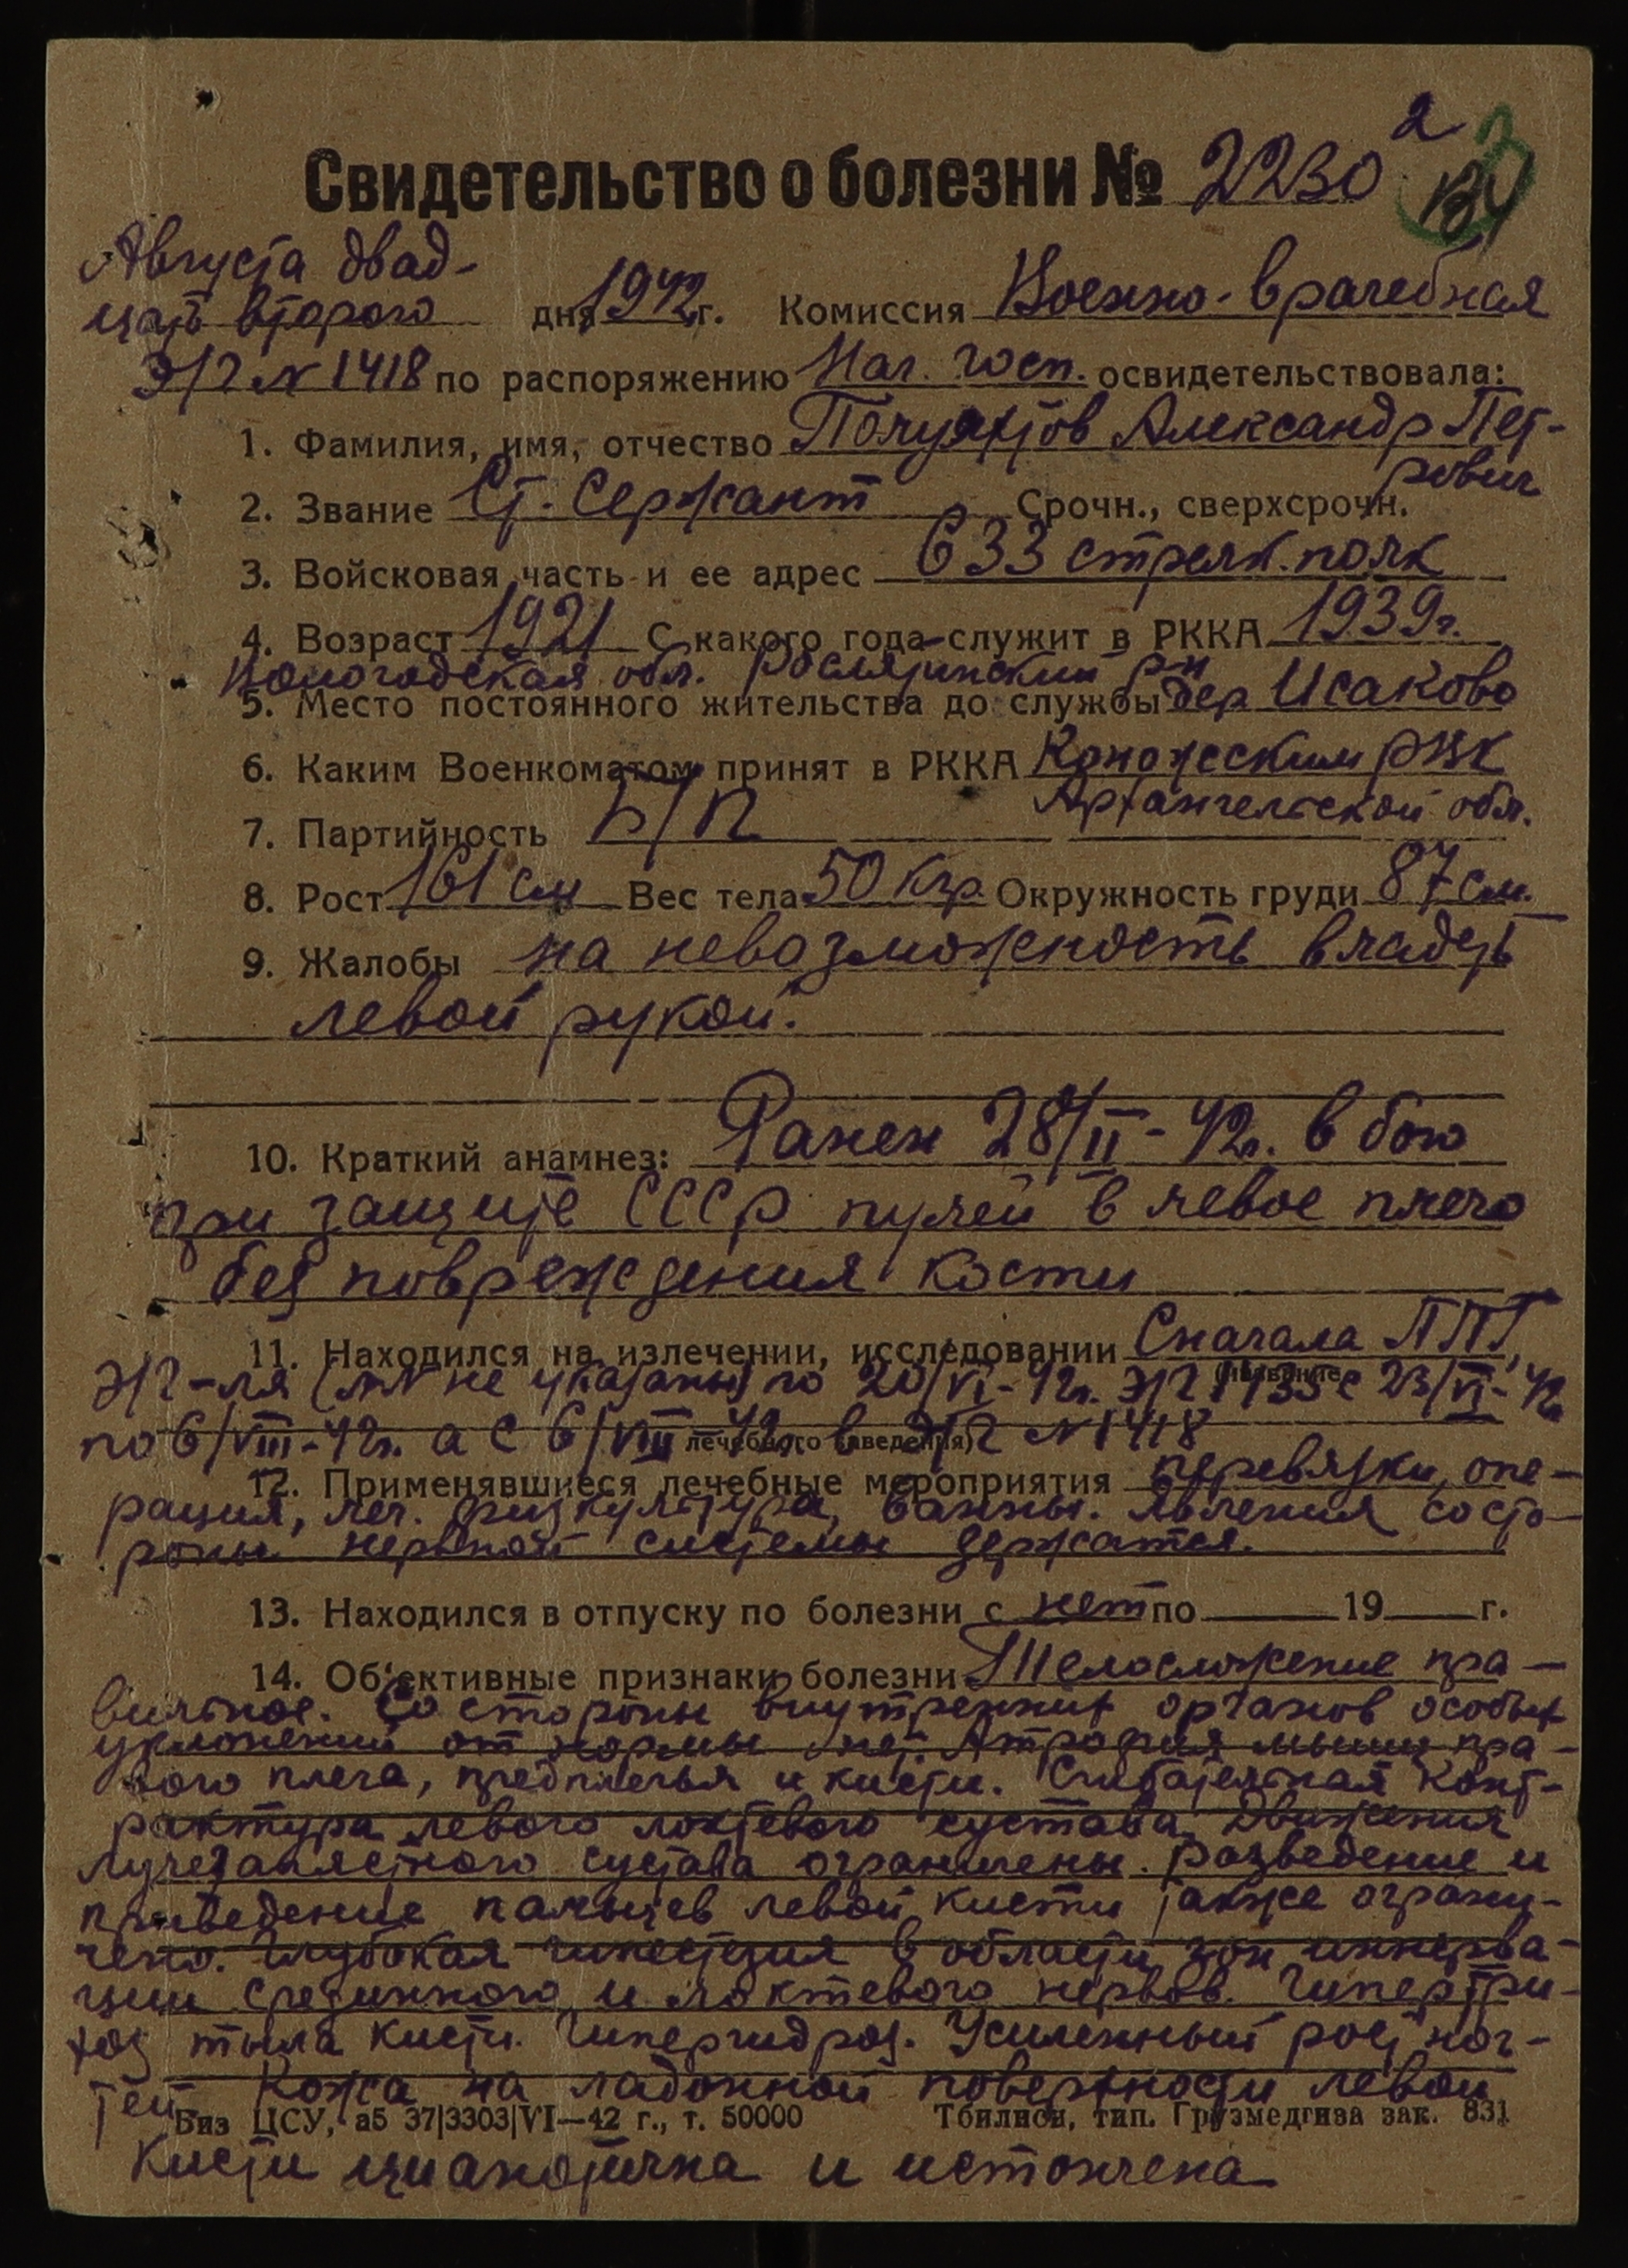 2
Свидетельство о болезни № 2230
Августа двад-
цать второго дня 1942 г. Комиссия Военно-врачебная
Э/Г № 1418 по распоряжению Нач. госп. освидетельствовала:
1. Фамилия, имя, отчество Полуяхтов Александр Пет-
рович
2. Звание Ст. Сержант Срочн., сверхсрочн.
3. Войсковая часть и ее адрес 633 стрелк. полк
4. Возраст 1921 С какого года служит в РККА 1939 г.
Вологодская обл. Рослятинский рн
5. Место постоянного жительства до службы дер Исаково
6. Каким Военкоматом принят в РККА Коношским РВК
Архангельской обл.
7. Партийность Б/П
8. Рост 161 см Вес тела 50 кгр. Окружность груди 87 см.
9. Жалобы на невозможность владеть
левой рукой.
10. Краткий анамнез: Ранен 28/II-42г. в бою
при защите СССР пулей в левое плечо
без повреждения кости
11. Находился на излечении, исследовании Сначала ППГ,
(название
Э/Г-ля (№№ не указаны) по 20/VI-42г. Э/Г 1133 с 23/VI-42
по 6/VIII-42г. а с 6/VIII-42г. в Э/Г № 1418
лечебного заведения)
12. Применявшиеся лечебные мероприятия перевязки, опе-
рация, леч. физкультура, ванны. Явления со сто-
роны нервной системы держатся.
13. Находился в отпуску по болезни с нет по 19 г.
14. Об'ективные признаки болезни Телосложение пра-
вильное. Со стороны внутренних органов особых
уклонений от нормы нет. Атрофия мышц пра-
вого плеча, предплечья и кисти. Сгибательная конт-
рактура левого локтевого сустава. Движения
лучезапястного сустава ограничены. Разведение и
приведение пальцев левой кисти также ограни-
чено. Глубокая гипестезия в области зон иннерва-
ции срединного и локтевого нервов. Гипертри-
хоз тыла кисти. Гипергидроз. Усиленный рост ног-
тей. Кожа на ладонной поверхности левой
Биз ЦСУ, а5 37|3303|VI—42 г., т. 50000 Тбилиси, тип. Грузмедгиза зак. 831
кисти цианотична и истончена